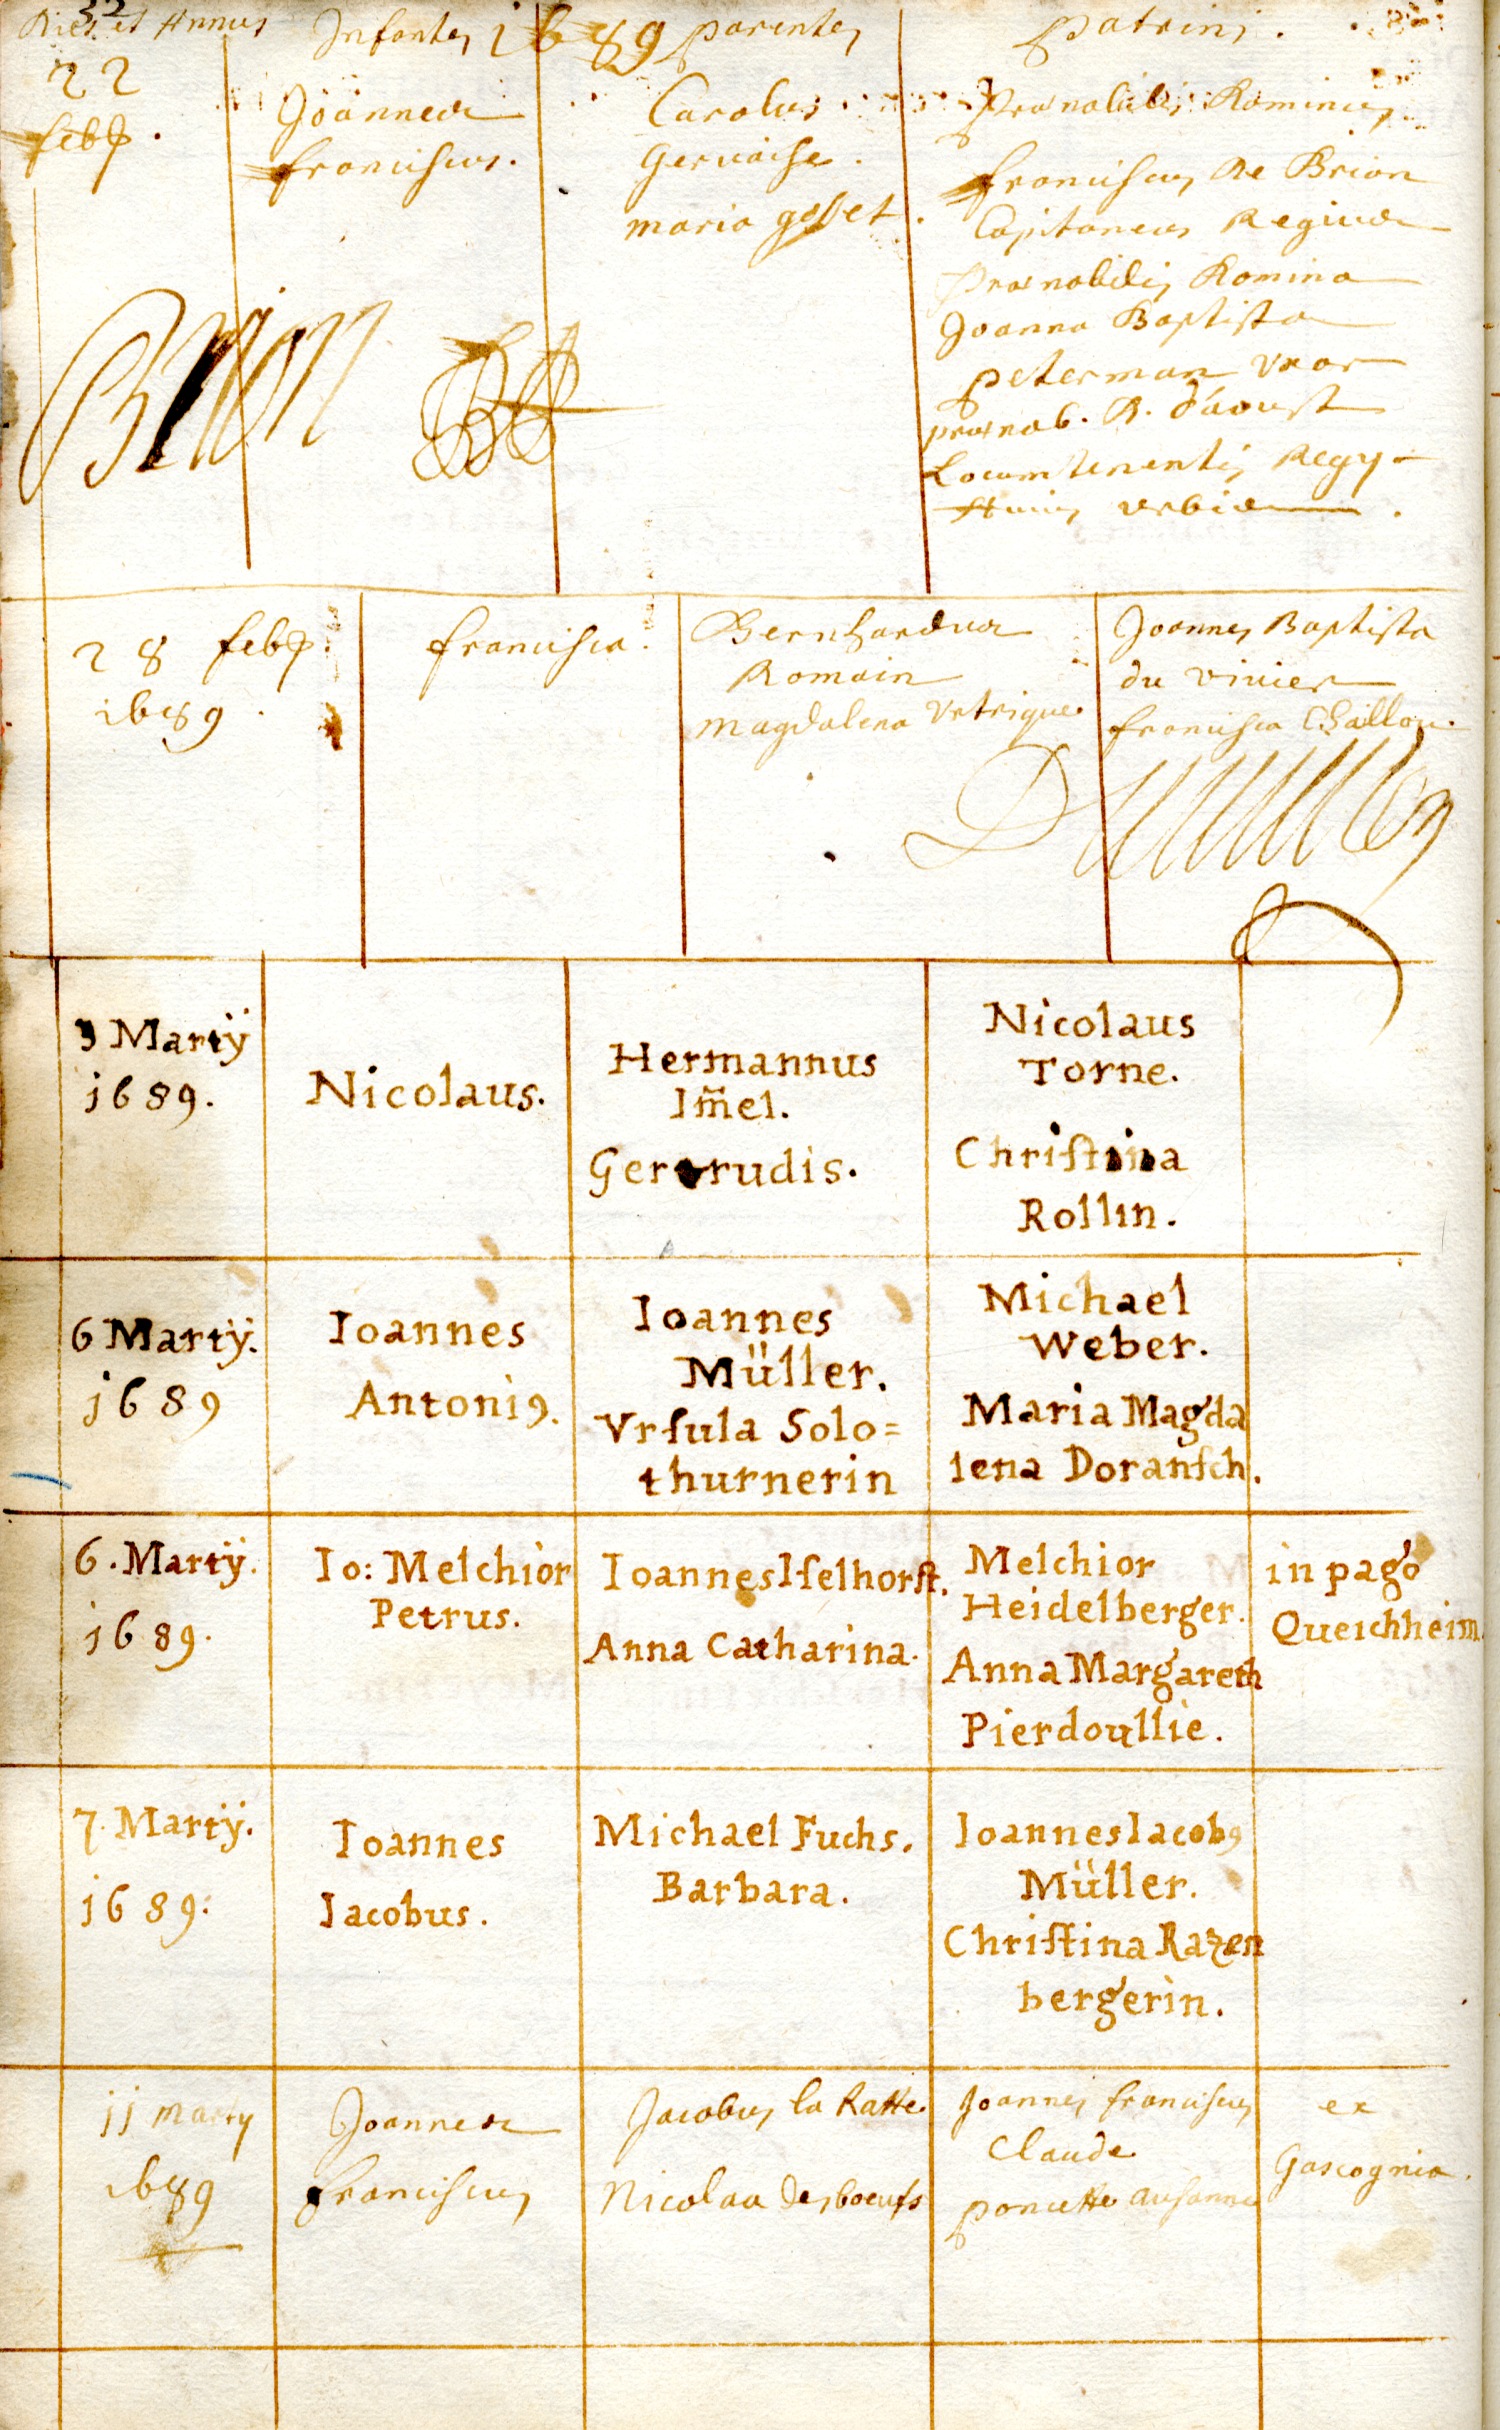 32
Dies et Annus Infantes 1689 parentes patrini.
22
febr.
Joannes
franciscus.
Carolus
Gervaise.
maria gobet.
Prænobilis Dominus
franciscus De Brion
Capitaneus Regius
Prænobilis Domina
Joanna Baptista
peterman Vxor
prænob. D. d'aoust
Locumtenentis Regy
Huius urbis.
Brion
28 febr.
1689.
francisca.
Bernhardus
Romain
Magdalena Vetrique
Joannes Baptista
du vivier
francisca Chaillou.
3 Martÿ
1689.
Nicolaus.
Hermannus
Im̃el.
Gertrudis.
Nicolaus
Torne.
Chriſtina
Rollin.
6 Martÿ.
1689
Ioannes
Antoni9.
Ioannes
Müller.
Vrſula Solo=
thurnerin
Michael
Weber.
Maria Magda
lena Doranſch.
6. Martÿ.
1689.
Io: Melchior
Petrus.
Ioannes Iſelhorſt.
Anna Catharina.
Melchior
Heidelberger.
Anna Margareth
Pierdoullie.
in pago
Queichheim.
7. Martÿ.
1689:
Ioannes
Iacobus.
Michael Fuchs.
Barbara.
Ioannes Iacob9
Müller.
Chriſtina Razen
bergerin.
11 marty
1689
Joannes
franciscus
Jacobus la Ratte
Nicolaa Desboeufs
Joannes franciscus
Claude
poncette
ex
Gascognia.